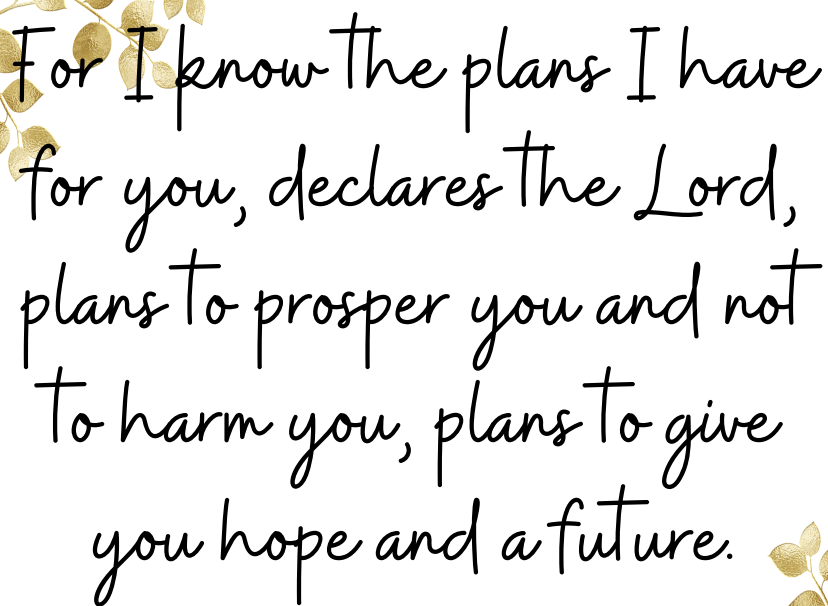 For I know the plans I have
for you, declares the Lord,
plans to prosper you and not
to harm you, plans to give
you hope and a future.